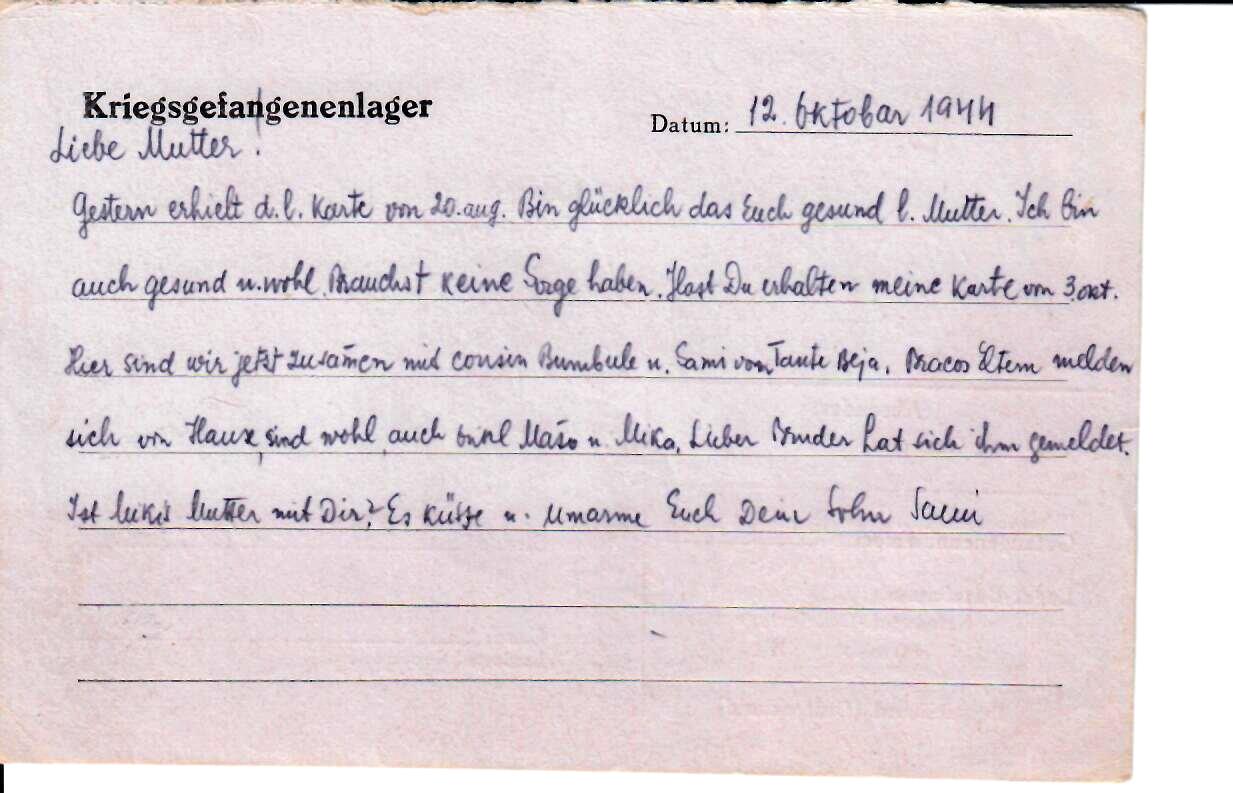 Kriegsgefangenenlager
Datum: 12. Oktobar 1944
Liebe Mutter!
Gestern erhielt d. l. Karte von 20. aug. Bin glücklich das Euch gesund l. Mutter. Ich bin
auch gesund u. wohl. Brauchst keine Sorge haben. Hast Du erhalten meine Karte von 3. okt.
Hier sind wir jetzt zusam̄en mit cousin Bumbule u. Sami von Tante Beja. Bracos Eltern melden
sich von Hause, sind wohl, auch onkl Mašo u. Mika. Lieber Bruder hat sich ihm gemeldet.
Ist Mutter mit Dir? Es küsse u. umarme Euch Dein Sohn Sami